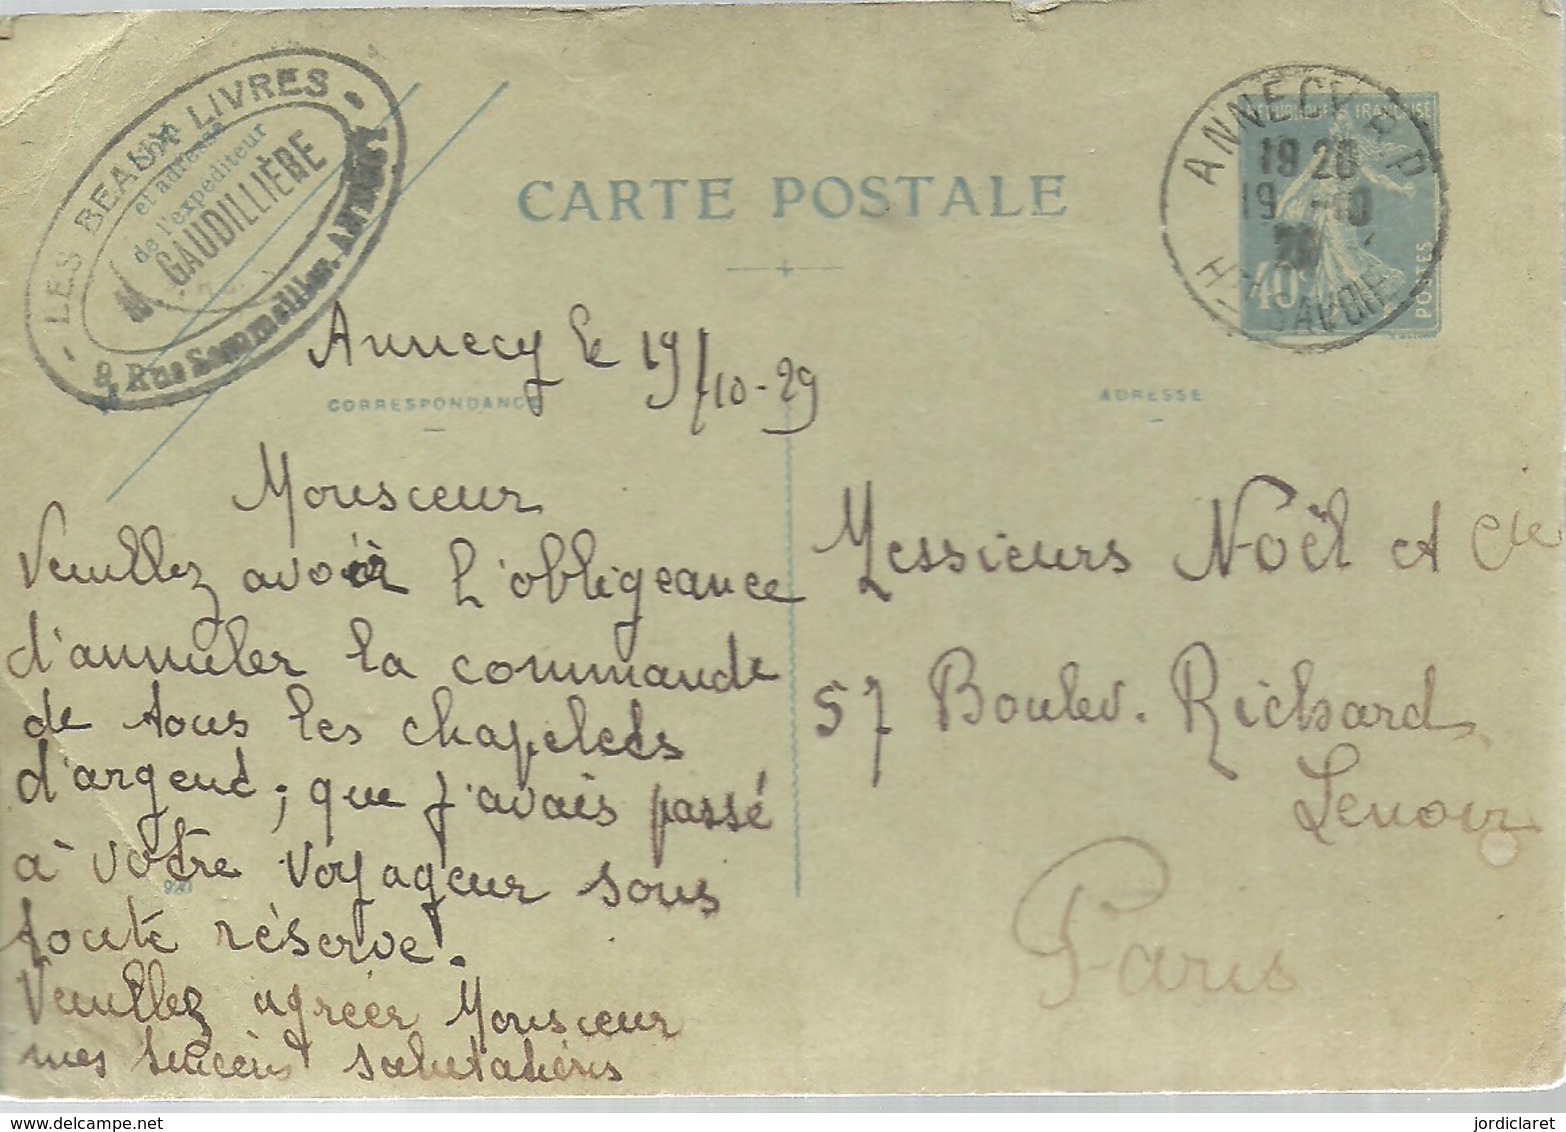 LES BEAUX LIVRES
et adresse
de l'expéditeur
M GAUDILLIÈRE
9, Rue Sommeiller, ANNECY
CARTE POSTALE
ANNECY R.P.
19 20
19 -10
29
HTE SAVOIE
REPUBLIQUE FRANÇAISE
40c
POSTES
Annecy le 19/10-29
CORRESPONDANCE
ADRESSE
Monsieur
Veuillez avoir l'obligeance
d'annuler la commande
de tous les chapelets
d'argent, que j'avais passé
à votre voyageur sous
toute réserve.
Veuillez agréer Monsieur
mes sincères salutations
920
Messieurs Noël et Cie
57 Boulev. Richard
Lenoir
Paris
jordiclaret